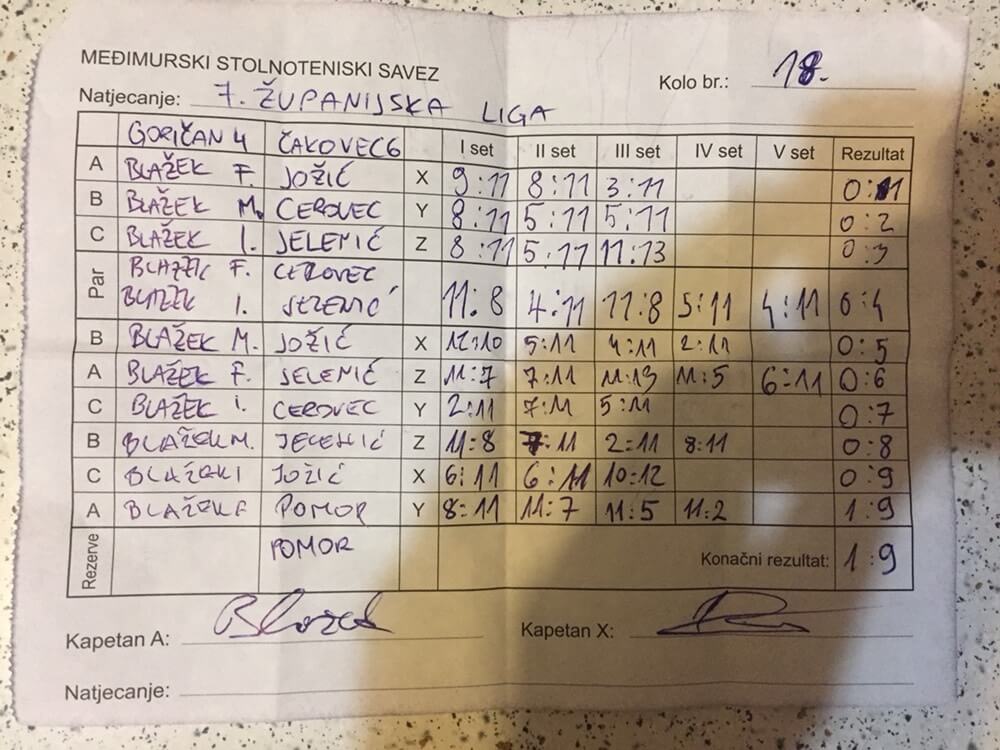 MEĐIMURSKI STOLNOTENISKI SAVEZ
Kolo br.: 18.
Natjecanje: 7. ŽUPANIJSKA LIGA
GORIČAN 4 ČAKOVEC 6 I set II set III set IV set V set Rezultat
A BLAŽEK F. JOŽIĆ X 9:11 8:11 3:11 0:1
B BLAŽEK M. CEROVEC Y 8:11 5:11 5:11 0:2
C BLAŽEK I. JELENIĆ Z 8:11 5:11 11:13 0:3
Par BLAŽEK F. CEROVEC
BLAŽEK I. JELENIĆ 11:8 4:11 11:8 5:11 4:11 0:4
B BLAŽEK M. JOŽIĆ X 12:10 5:11 4:11 2:11 0:5
A BLAŽEK F. JELENIĆ Z 11:7 7:11 11:13 11:5 6:11 0:6
C BLAŽEK I. CEROVEC Y 2:11 7:11 5:11 0:7
B BLAŽEK M. JELENIĆ Z 11:8 7:11 2:11 8:11 0:8
C BLAŽEK I JOŽIĆ X 6:11 6:11 10:12 0:9
A BLAŽEK F POMOR Y 8:11 11:7 11:5 11:2 1:9
Rezerve POMOR Konačni rezultat: 1:9
Kapetan A: Blažek Kapetan X:
Natjecanje: